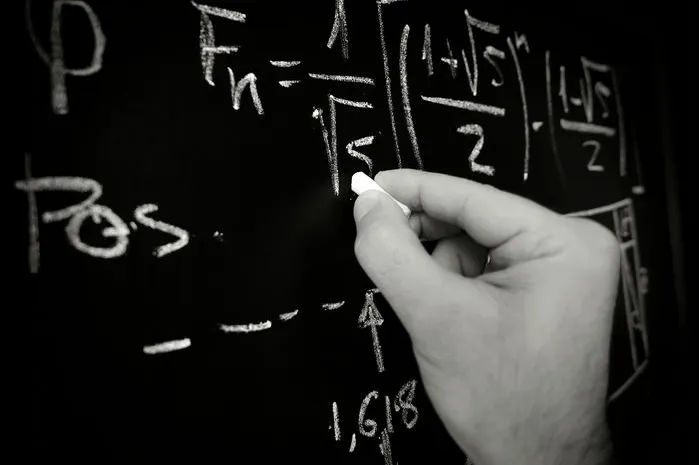 φ F_n = 1/√5 [ ( 1+√5 / 2 )^n - ( 1-√5 / 2 )
Pos.
1,618